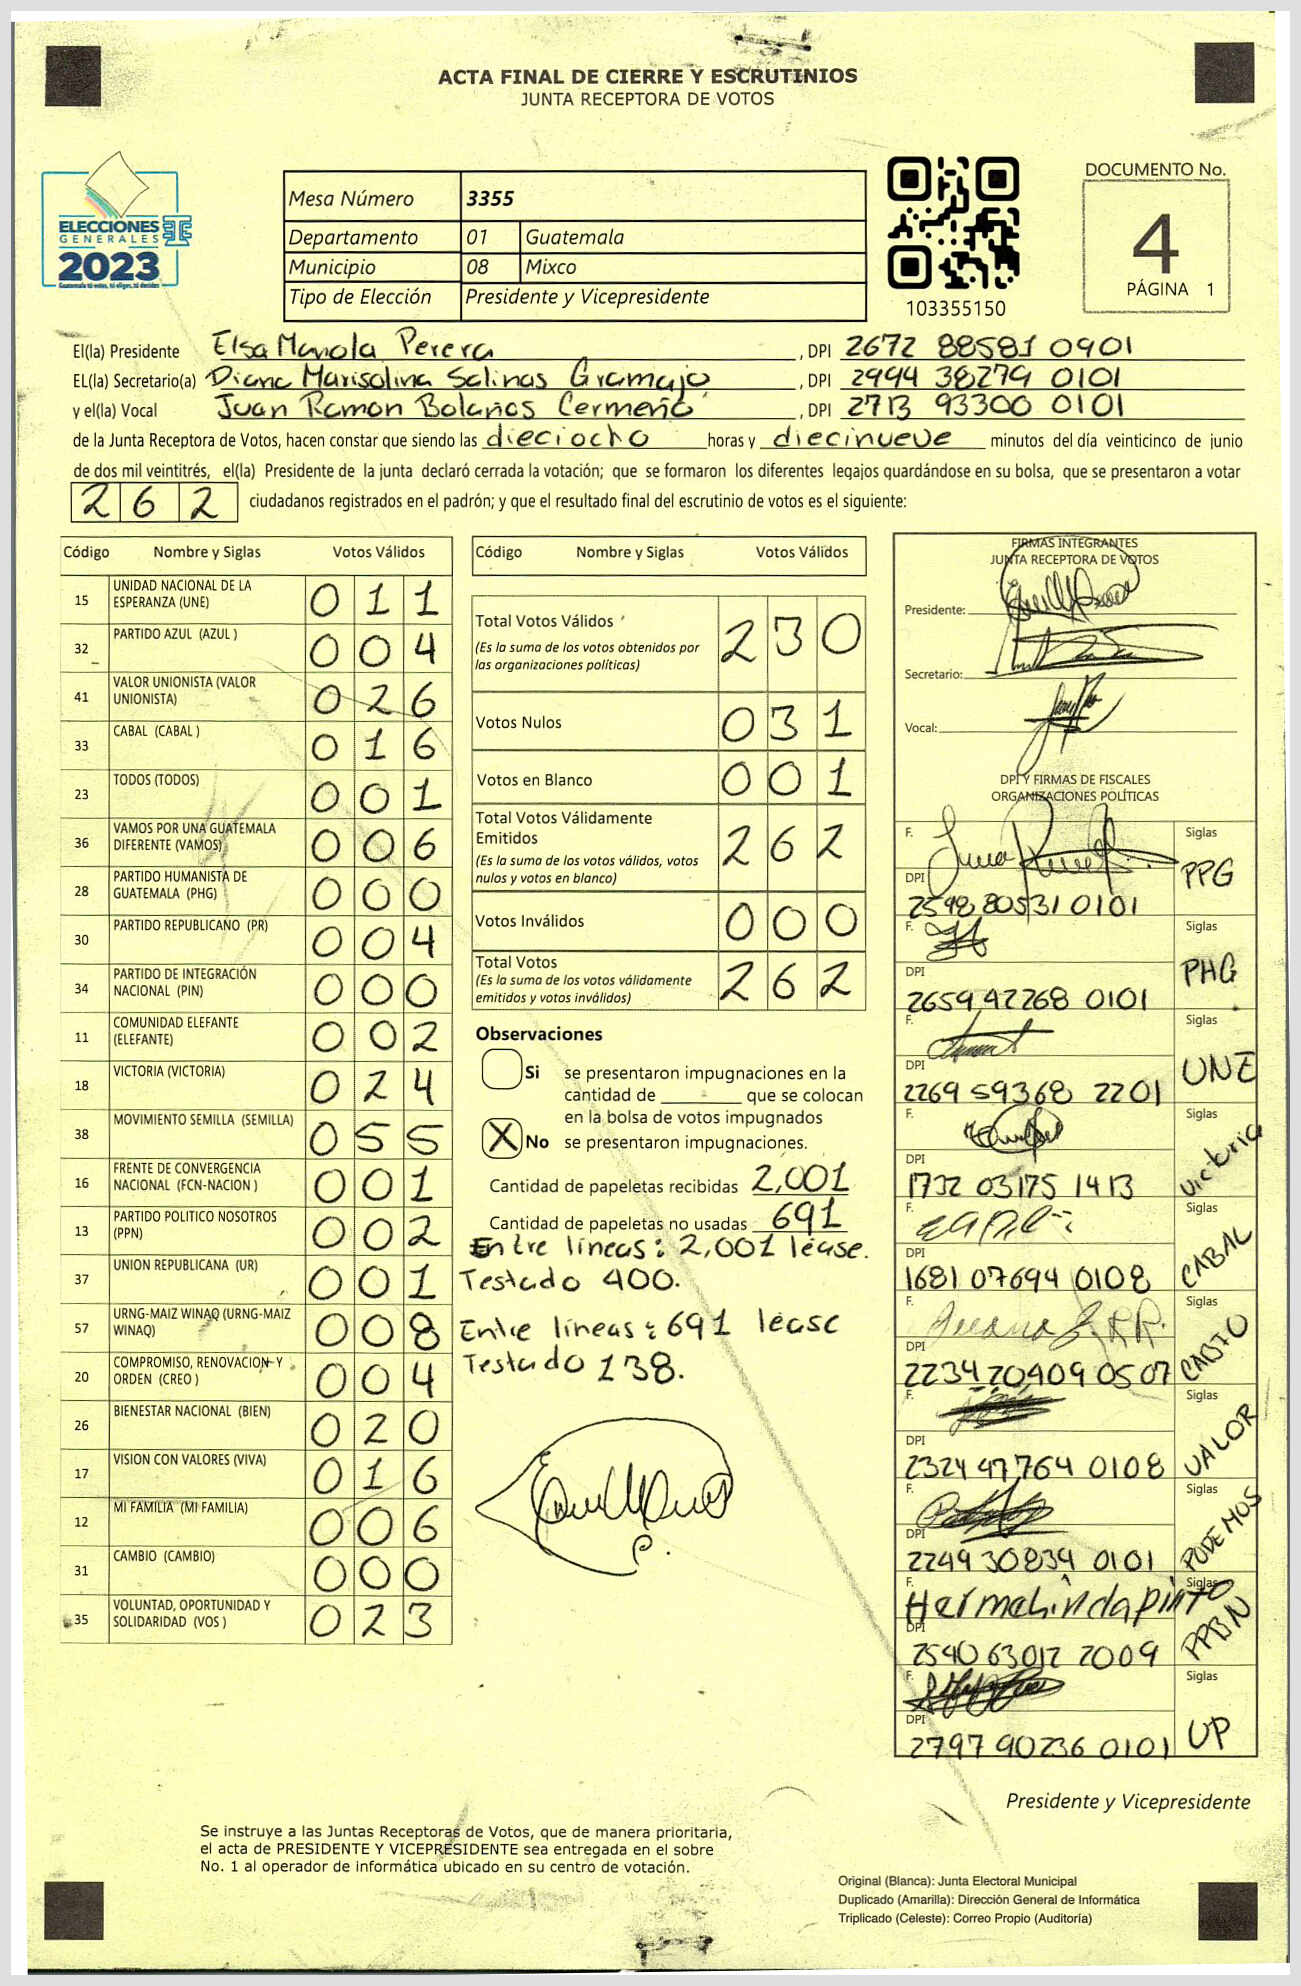 ACTA FINAL DE CIERRE Y ESCRUTINIOS
JUNTA RECEPTORA DE VOTOS
ELECCIONES
GENERALES
2023
Guatemala tú votas, tú eliges, tú decides
Mesa Número 3355
Departamento 01 Guatemala
Municipio 08 Mixco
Tipo de Elección Presidente y Vicepresidente
103355150
DOCUMENTO No.
4
PÁGINA 1
El(la) Presidente Elsa Mariola Perera, DPI 2672 88581 0901
EL(la) Secretario(a) Diana Marisolina Salinas Gramajo, DPI 2994 38279 0101
y el(la) Vocal Juan Ramon Bolaños Cermeño, DPI 2713 93300 0101
de la Junta Receptora de Votos, hacen constar que siendo las dieciocho horas y diecinueve minutos del día veinticinco de junio
de dos mil veintitrés, el(la) Presidente de la junta declaró cerrada la votación; que se formaron los diferentes legajos guardándose en su bolsa, que se presentaron a votar
262 ciudadanos registrados en el padrón; y que el resultado final del escrutinio de votos es el siguiente:
Código Nombre y Siglas Votos Válidos
15 UNIDAD NACIONAL DE LA ESPERANZA (UNE) 011
32 PARTIDO AZUL (AZUL ) 004
41 VALOR UNIONISTA (VALOR UNIONISTA) 026
33 CABAL (CABAL ) 016
23 TODOS (TODOS) 001
36 VAMOS POR UNA GUATEMALA DIFERENTE (VAMOS) 006
28 PARTIDO HUMANISTA DE GUATEMALA (PHG) 000
30 PARTIDO REPUBLICANO (PR) 004
34 PARTIDO DE INTEGRACIÓN NACIONAL (PIN) 000
11 COMUNIDAD ELEFANTE (ELEFANTE) 002
18 VICTORIA (VICTORIA) 024
38 MOVIMIENTO SEMILLA (SEMILLA) 055
16 FRENTE DE CONVERGENCIA NACIONAL (FCN-NACION ) 001
13 PARTIDO POLITICO NOSOTROS (PPN) 002
37 UNION REPUBLICANA (UR) 001
57 URNG-MAIZ WINAQ (URNG-MAIZ WINAQ) 008
20 COMPROMISO, RENOVACION Y ORDEN (CREO ) 004
26 BIENESTAR NACIONAL (BIEN) 020
17 VISION CON VALORES (VIVA) 016
12 MI FAMILIA (MI FAMILIA) 006
31 CAMBIO (CAMBIO) 000
35 VOLUNTAD, OPORTUNIDAD Y SOLIDARIDAD (VOS ) 023
Código Nombre y Siglas Votos Válidos
Total Votos Válidos 230
(Es la suma de los votos obtenidos por
las organizaciones políticas)
Votos Nulos 031
Votos en Blanco 001
Total Votos Válidamente
Emitidos 262
(Es la suma de los votos válidos, votos
nulos y votos en blanco)
Votos Inválidos 000
Total Votos 262
(Es la suma de los votos válidamente
emitidos y votos inválidos)
Observaciones
Si se presentaron impugnaciones en la
cantidad de ________ que se colocan
en la bolsa de votos impugnados
X No se presentaron impugnaciones.
Cantidad de papeletas recibidas 2,001
Cantidad de papeletas no usadas 691
Entre líneas: 2,001 léase.
Testado 400.
Entre líneas: 691 léase
Testado 138.
FIRMAS INTEGRANTES
JUNTA RECEPTORA DE VOTOS
Presidente:
Secretario:
Vocal:
DPI Y FIRMAS DE FISCALES
ORGANIZACIONES POLÍTICAS
F. Siglas
DPI PPG
2598 80531 0101
F. Siglas
DPI PHG
2659 42268 0101
F. Siglas
DPI UNE
2269 59368 2201
F. Siglas
DPI Victoria
1732 03175 1413
F. Siglas
DPI CABAL
1681 07694 0108
F. Siglas
DPI
2234 20409 0507
F. Siglas
DPI VALOR
2324 47764 0108
F. Siglas
DPI PODEMOS
2249 30834 0101
F. Hermelinda pinto Siglas
DPI
2540 63012 2009
F. Siglas
DPI UP
2797 90236 0101
Presidente y Vicepresidente
Se instruye a las Juntas Receptoras de Votos, que de manera prioritaria,
el acta de PRESIDENTE Y VICEPRESIDENTE sea entregada en el sobre
No. 1 al operador de informática ubicado en su centro de votación.
Original (Blanca): Junta Electoral Municipal
Duplicado (Amarilla): Dirección General de Informática
Triplicado (Celeste): Correo Propio (Auditoría)